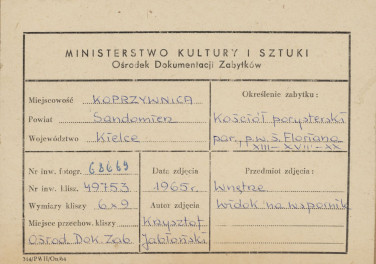 MINISTERSTWO KULTURY I SZTUKI
Ośrodek Dokumentacji Zabytków
Miejscowość KOPRZYWNICA
Powiat Sandomierz
Województwo Kielce
Określenie zabytku:
Kościół pocysterski
par., p.w. Ś. Floriana
XIII-XVII-XX
Nr inw. fotogr. 68669
Nr inw. klisz. 49753
Wymiary kliszy 6x9
Miejsce przechow. kliszy
Ośrod. Dok. Zab.
Data zdjęcia
1965r.
Autor zdjęcia
Krysztof
Jabłoński
Przedmiot zdjęcia:
Wnętrze
Widok na wspornik